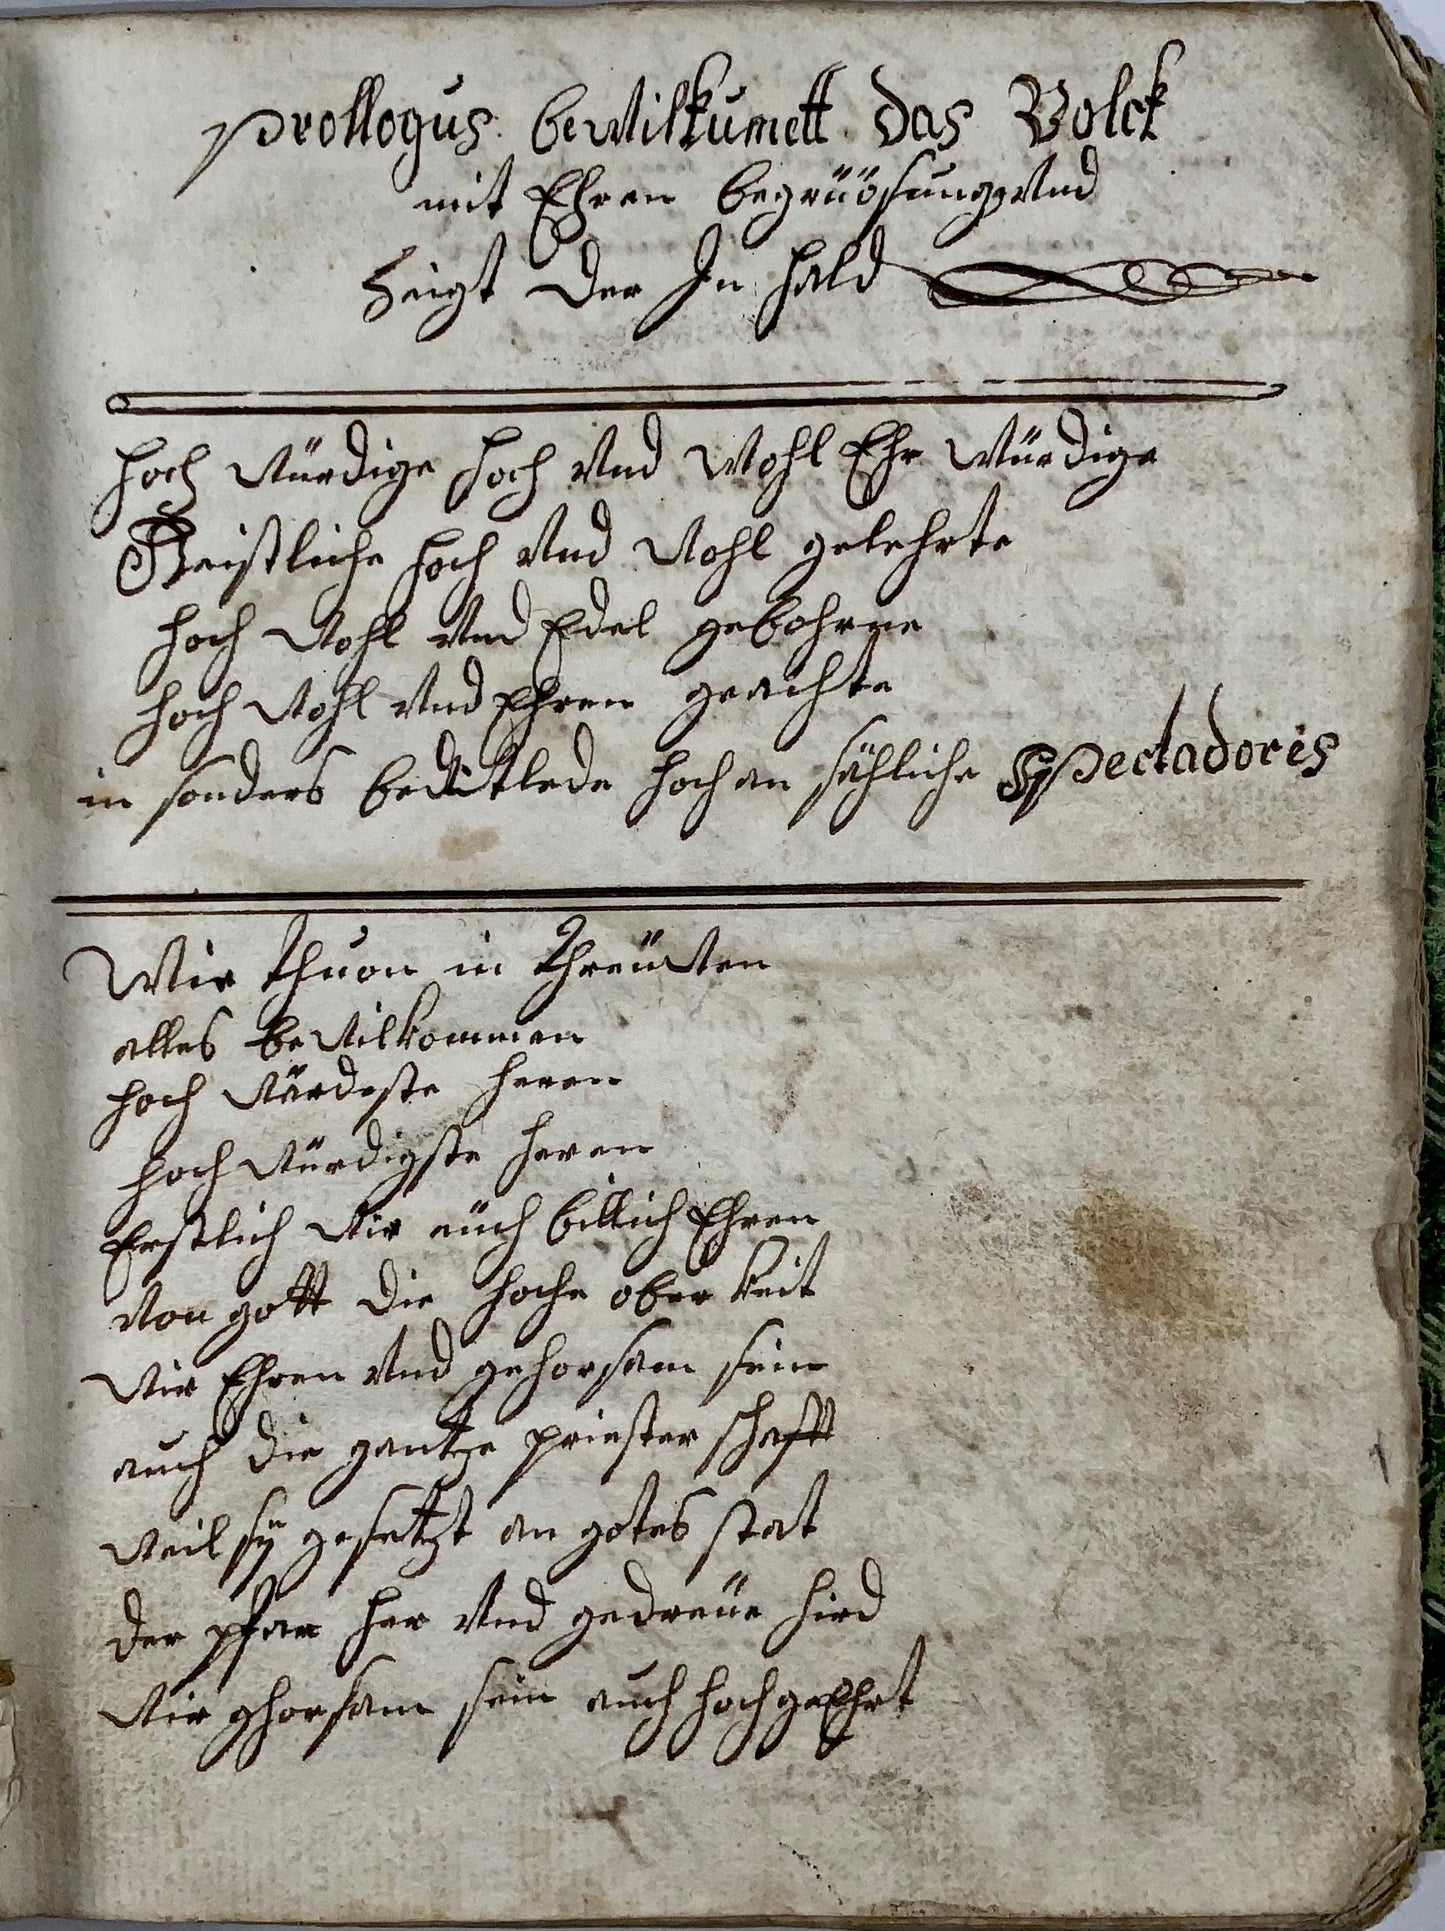 Prollogus bewilkumett das Volck
mit Ehren begrüösung Vnd
Zeigt der In hald
hoch würdige hoch Vnd Wohl Ehr Würdige
Geistliche hoch Vnd Wohl gelehrte
hoch Wohl Vnd Edel gebohrne
hoch Wohl Vnd Ehren geachte
in sonders beditlede hoch an sähliche Spectadores
Wir thuon in threüwen
alles bewilkommen
hoch wärdeste heren
hoch würdigste heren
Erstlich wir eüch billich Ehren
Von gott die hoche ober keit
wir Ehren Vnd gehorsam sein
auch die gantze priester schafft
weil sÿ gesetzt an gotes stat
der pfar her Vnd gedreüe hird
wir ghorsam sein auch hoch geEhrt